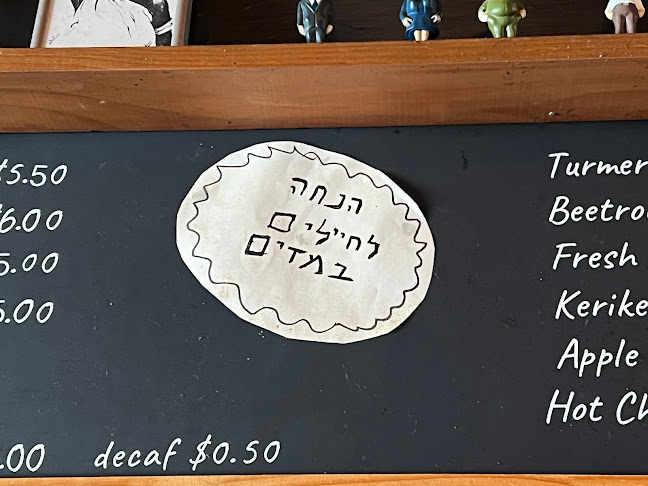 $5.50
6.00
5.00
5.00
.00
decaf $0.50
הנחה
לחיילים
במדים
Turmer
Beetro
Fresh
Kerike
Apple
Hot Ch